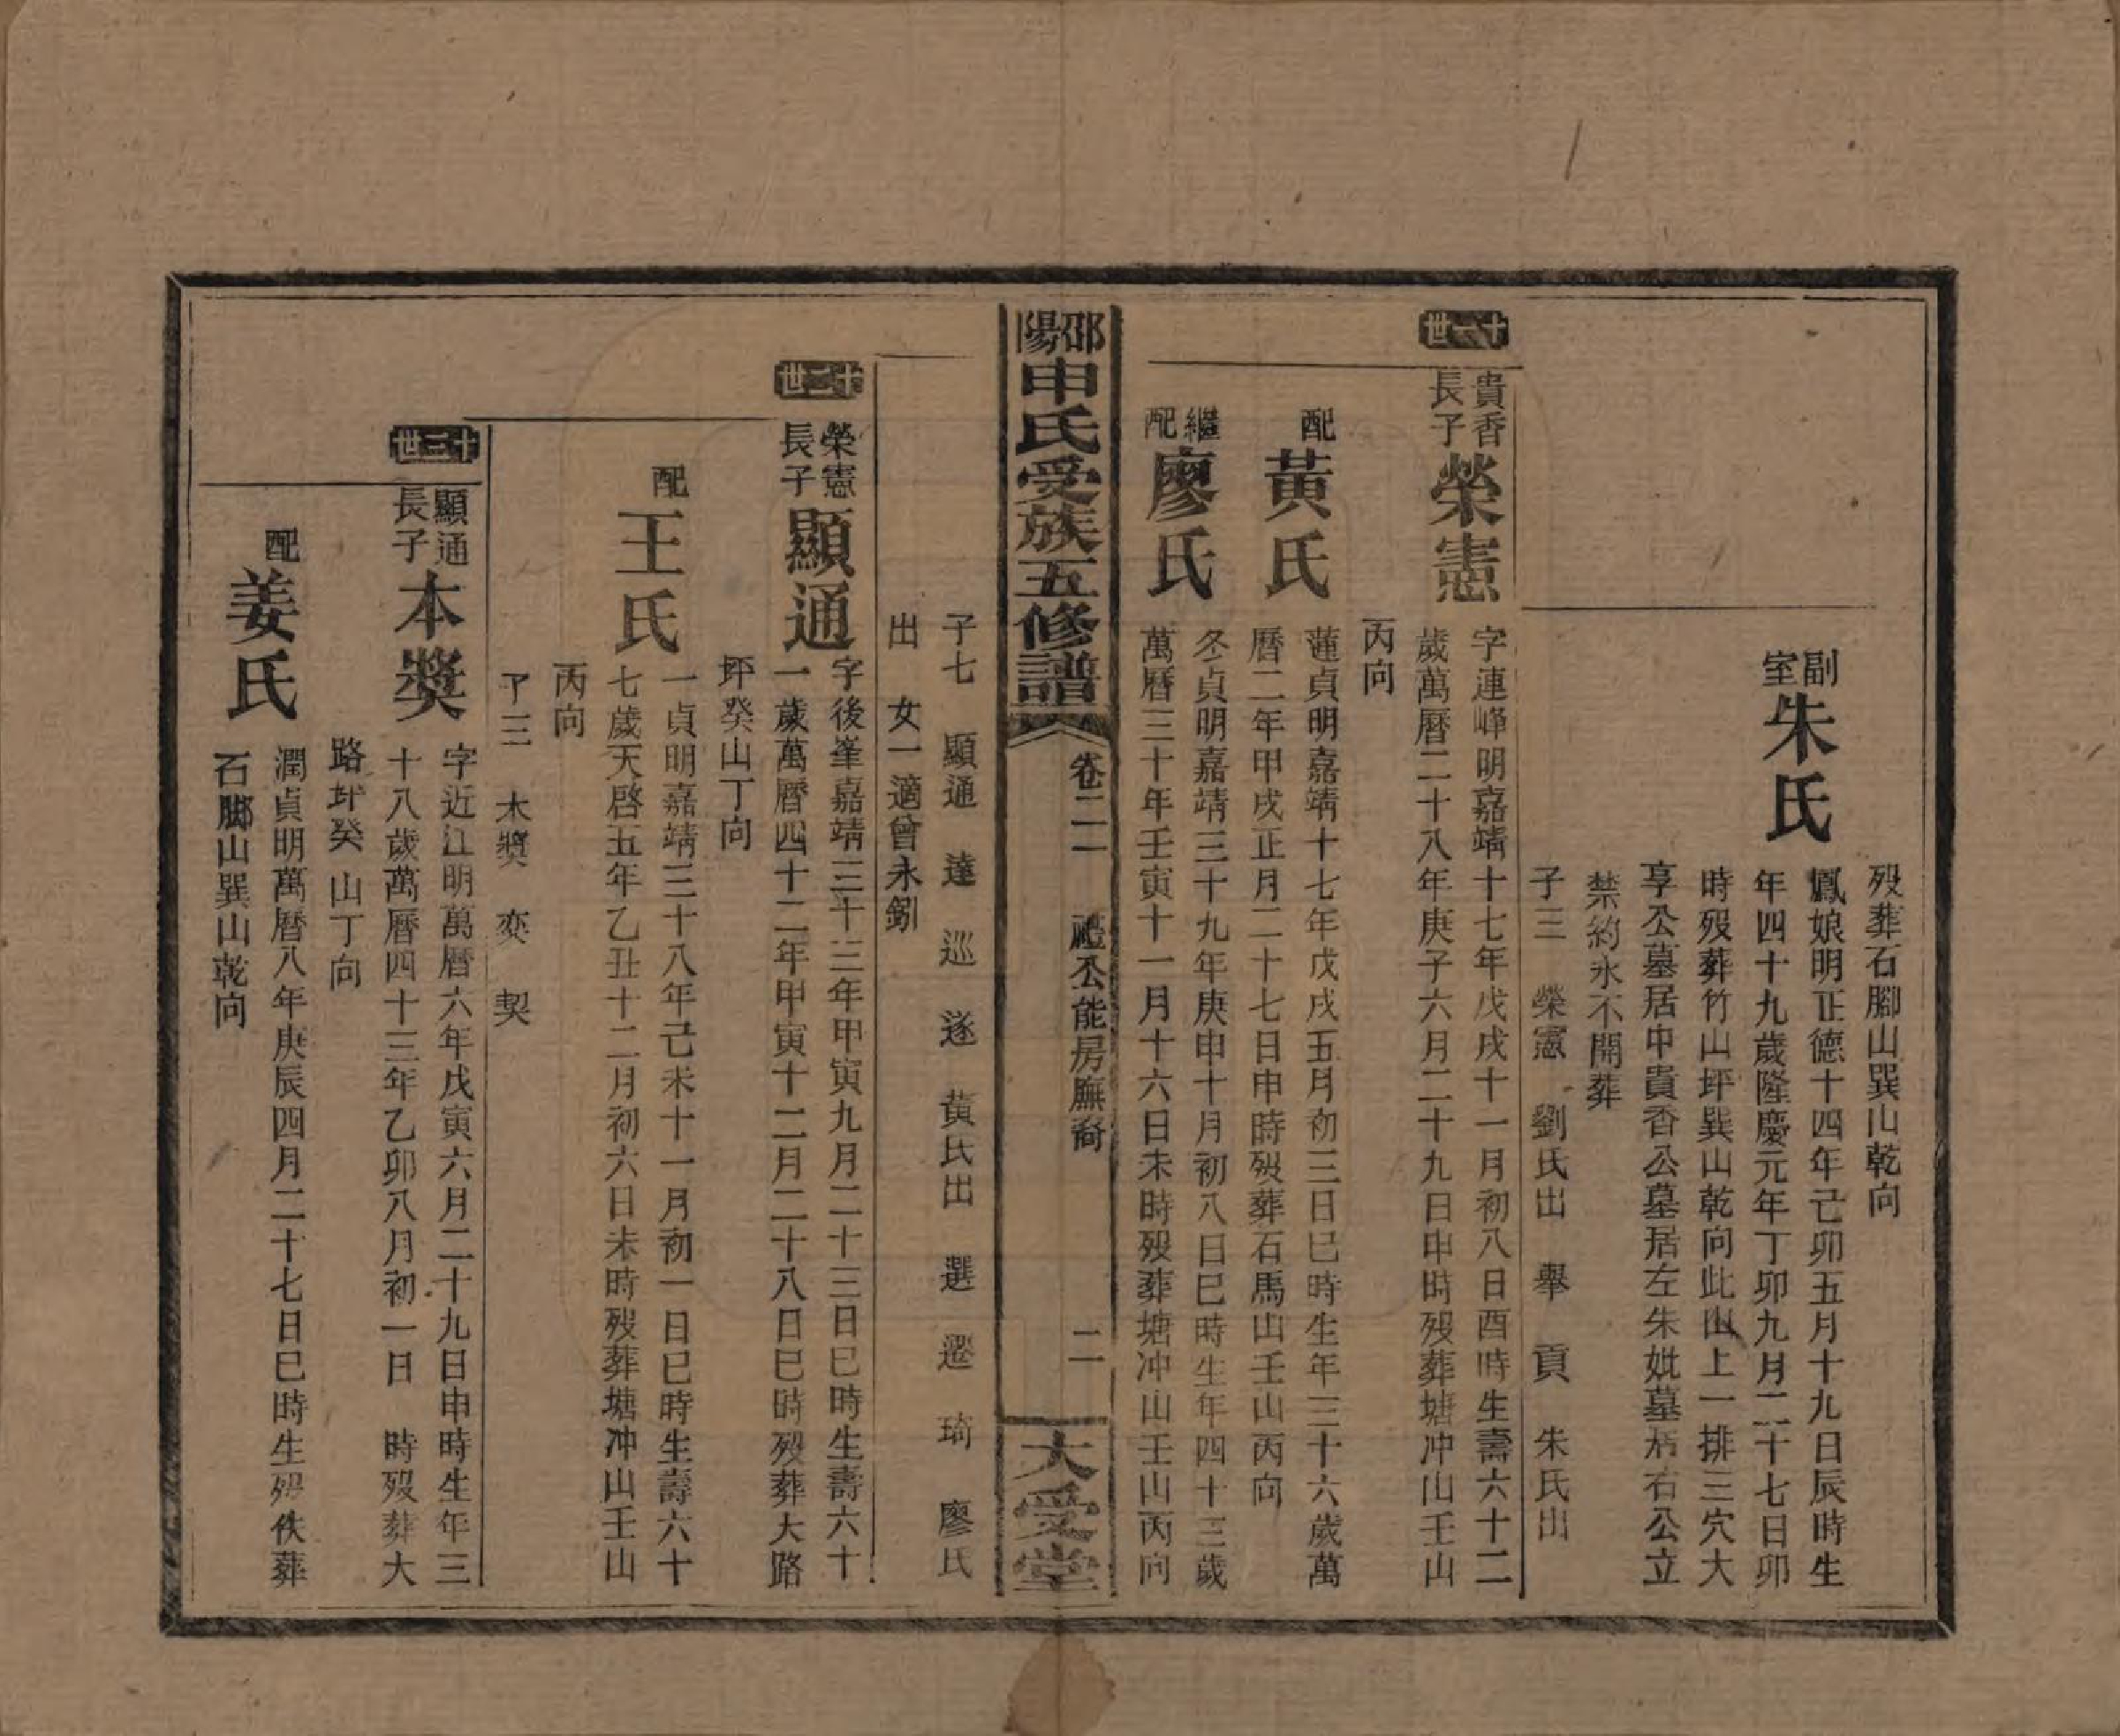 歿葬石腳山巽山乾向
副室
朱氏
鳳娘明正德十四年己卯五月十九日辰時生
年四十九歲隆慶元年丁卯九月二十七日卯
時歿葬竹山坪巽山乾向此山上一排三穴大
享公墓居中貴香公墓居左朱妣墓居右公立
禁約永不開葬
子三 榮憲 劉氏出 舉 貢 朱氏出
十一世
貴香長子
榮憲
字連峰明嘉靖十七年戊戌十一月初八日酉時生壽六十二
歲萬曆二十八年庚子六月二十九日申時歿葬塘冲山壬山
丙向
配
黃氏
蓮貞明嘉靖十七年戊戌五月初三日巳時生年三十六歲萬
曆二年甲戌正月二十七日申時歿葬石馬山壬山丙向
繼配
廖氏
冬貞明嘉靖三十九年庚申十月初八日巳時生年四十三歲
萬曆三十年壬寅十一月十六日未時歿葬塘冲山壬山丙向
邵陽申氏受族五修譜
卷二
禮公能房廡裔
二
大受堂
子七 顯通 達 巡 遂 黃氏出 選 遷 琦 廖氏
出 女一適曾永
十二世
榮憲長子
顯通
字後峯嘉靖三十三年甲寅九月二十三日巳時生壽六十
一歲萬曆四十二年甲寅十二月二十八日巳時歿葬大路
坪癸山丁向
配
王氏
一貞明嘉靖三十八年己未十一月初一日巳時生壽六十
七歲天啓五年乙丑十二月初六日未時歿葬塘冲山壬山
丙向
子三 本獎 奕 契
十三世
顯通長子
本獎
字近江明萬曆六年戊寅六月二十九日申時生年三
十八歲萬曆四十三年乙卯八月初一日 時歿葬大
路坪癸山丁向
配
姜氏
潤貞明萬曆八年庚辰四月二十七日巳時生歿佚葬
石腳山巽山乾向